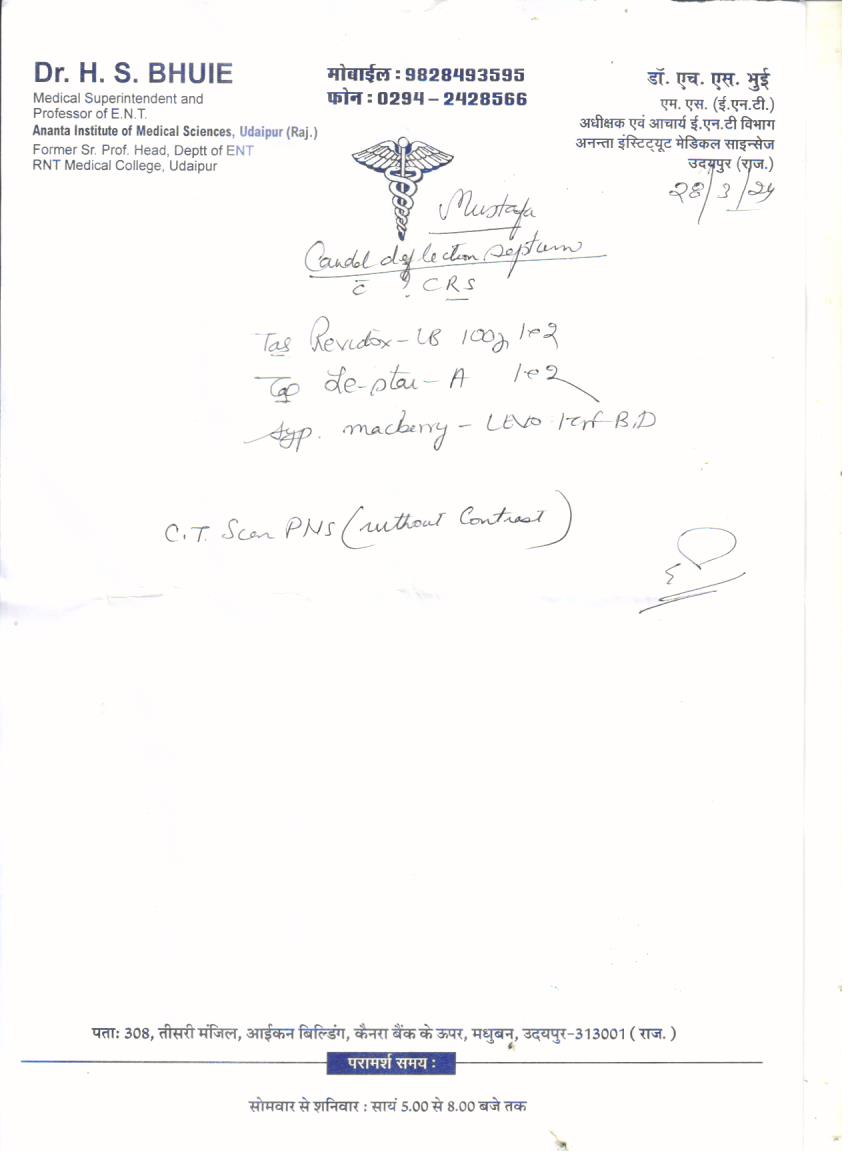 Dr. H. S. BHUIE
Medical Superintendent and
Professor of E.N.T.
Ananta Institute of Medical Sciences, Udaipur (Raj.)
Former Sr. Prof. Head, Deptt of ENT
RNT Medical College, Udaipur
मोबाईल : 9828493595
फोन : 0294 – 2428566
डॉ. एच. एस. भुई
एम. एस. (ई.एन.टी.)
अधीक्षक एवं आचार्य ई.एन.टी विभाग
अनन्ता इंस्टिट्यूट मेडिकल साइन्सेज
उदयपुर (राज.)
28/3/24
Mustafa
deflection septum
c̄ ? CRS
Tab Revidox – LB 100g
A
Syp. macberry – LEVO B.D
C.T. Scan PNS (without Contrast)
पताः 308, तीसरी मंजिल, आईकन बिल्डिंग, कैनरा बैंक के ऊपर, मधुबन, उदयपुर-313001 ( राज. )
परामर्श समय :
सोमवार से शनिवार : सायं 5.00 से 8.00 बजे तक